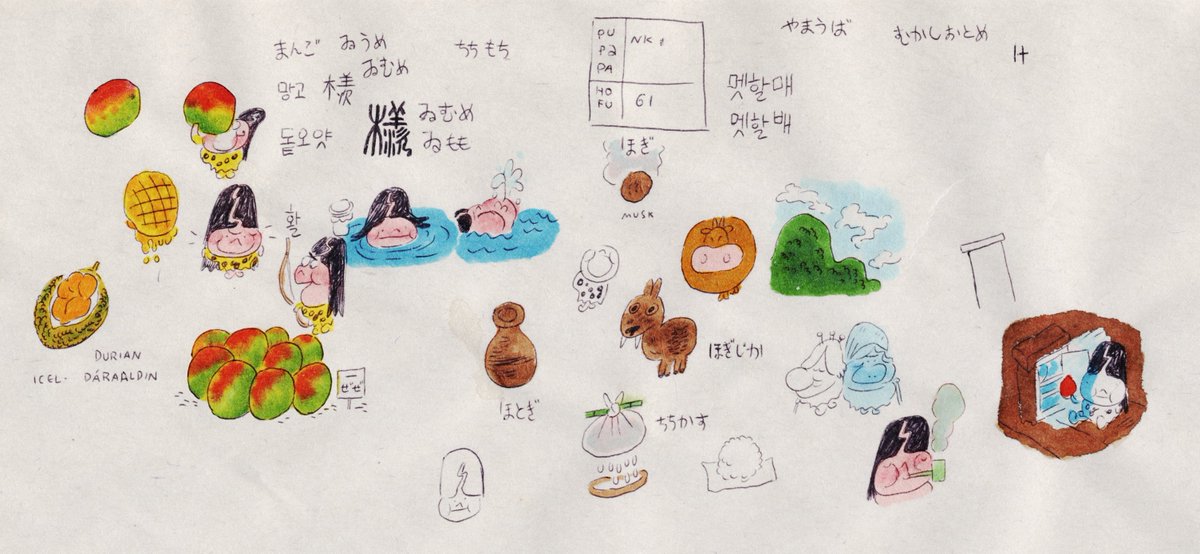 まんご
ゐうめ
ゐむめ
망고
檨
돝오얏
檨
ゐむめ
ゐもも
ちちもち
PU
PA
PA
HO
FU
61
やまうば
むかしおとめ
け
멧할매
멧할배
ほぎ
MUSK
활
ほぎじか
DURIAN
ICEL. DÁRAALDIN
一
ぜぜ
ほとぎ
ちちかす